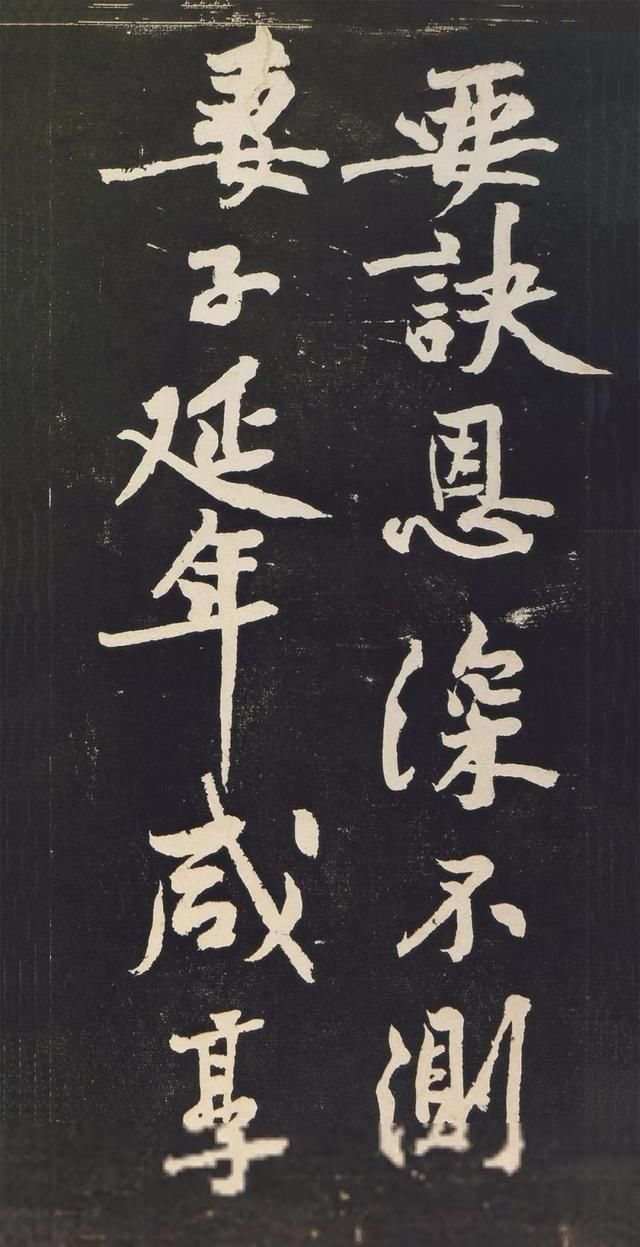 要訣恩深不測
妻子延年咸享